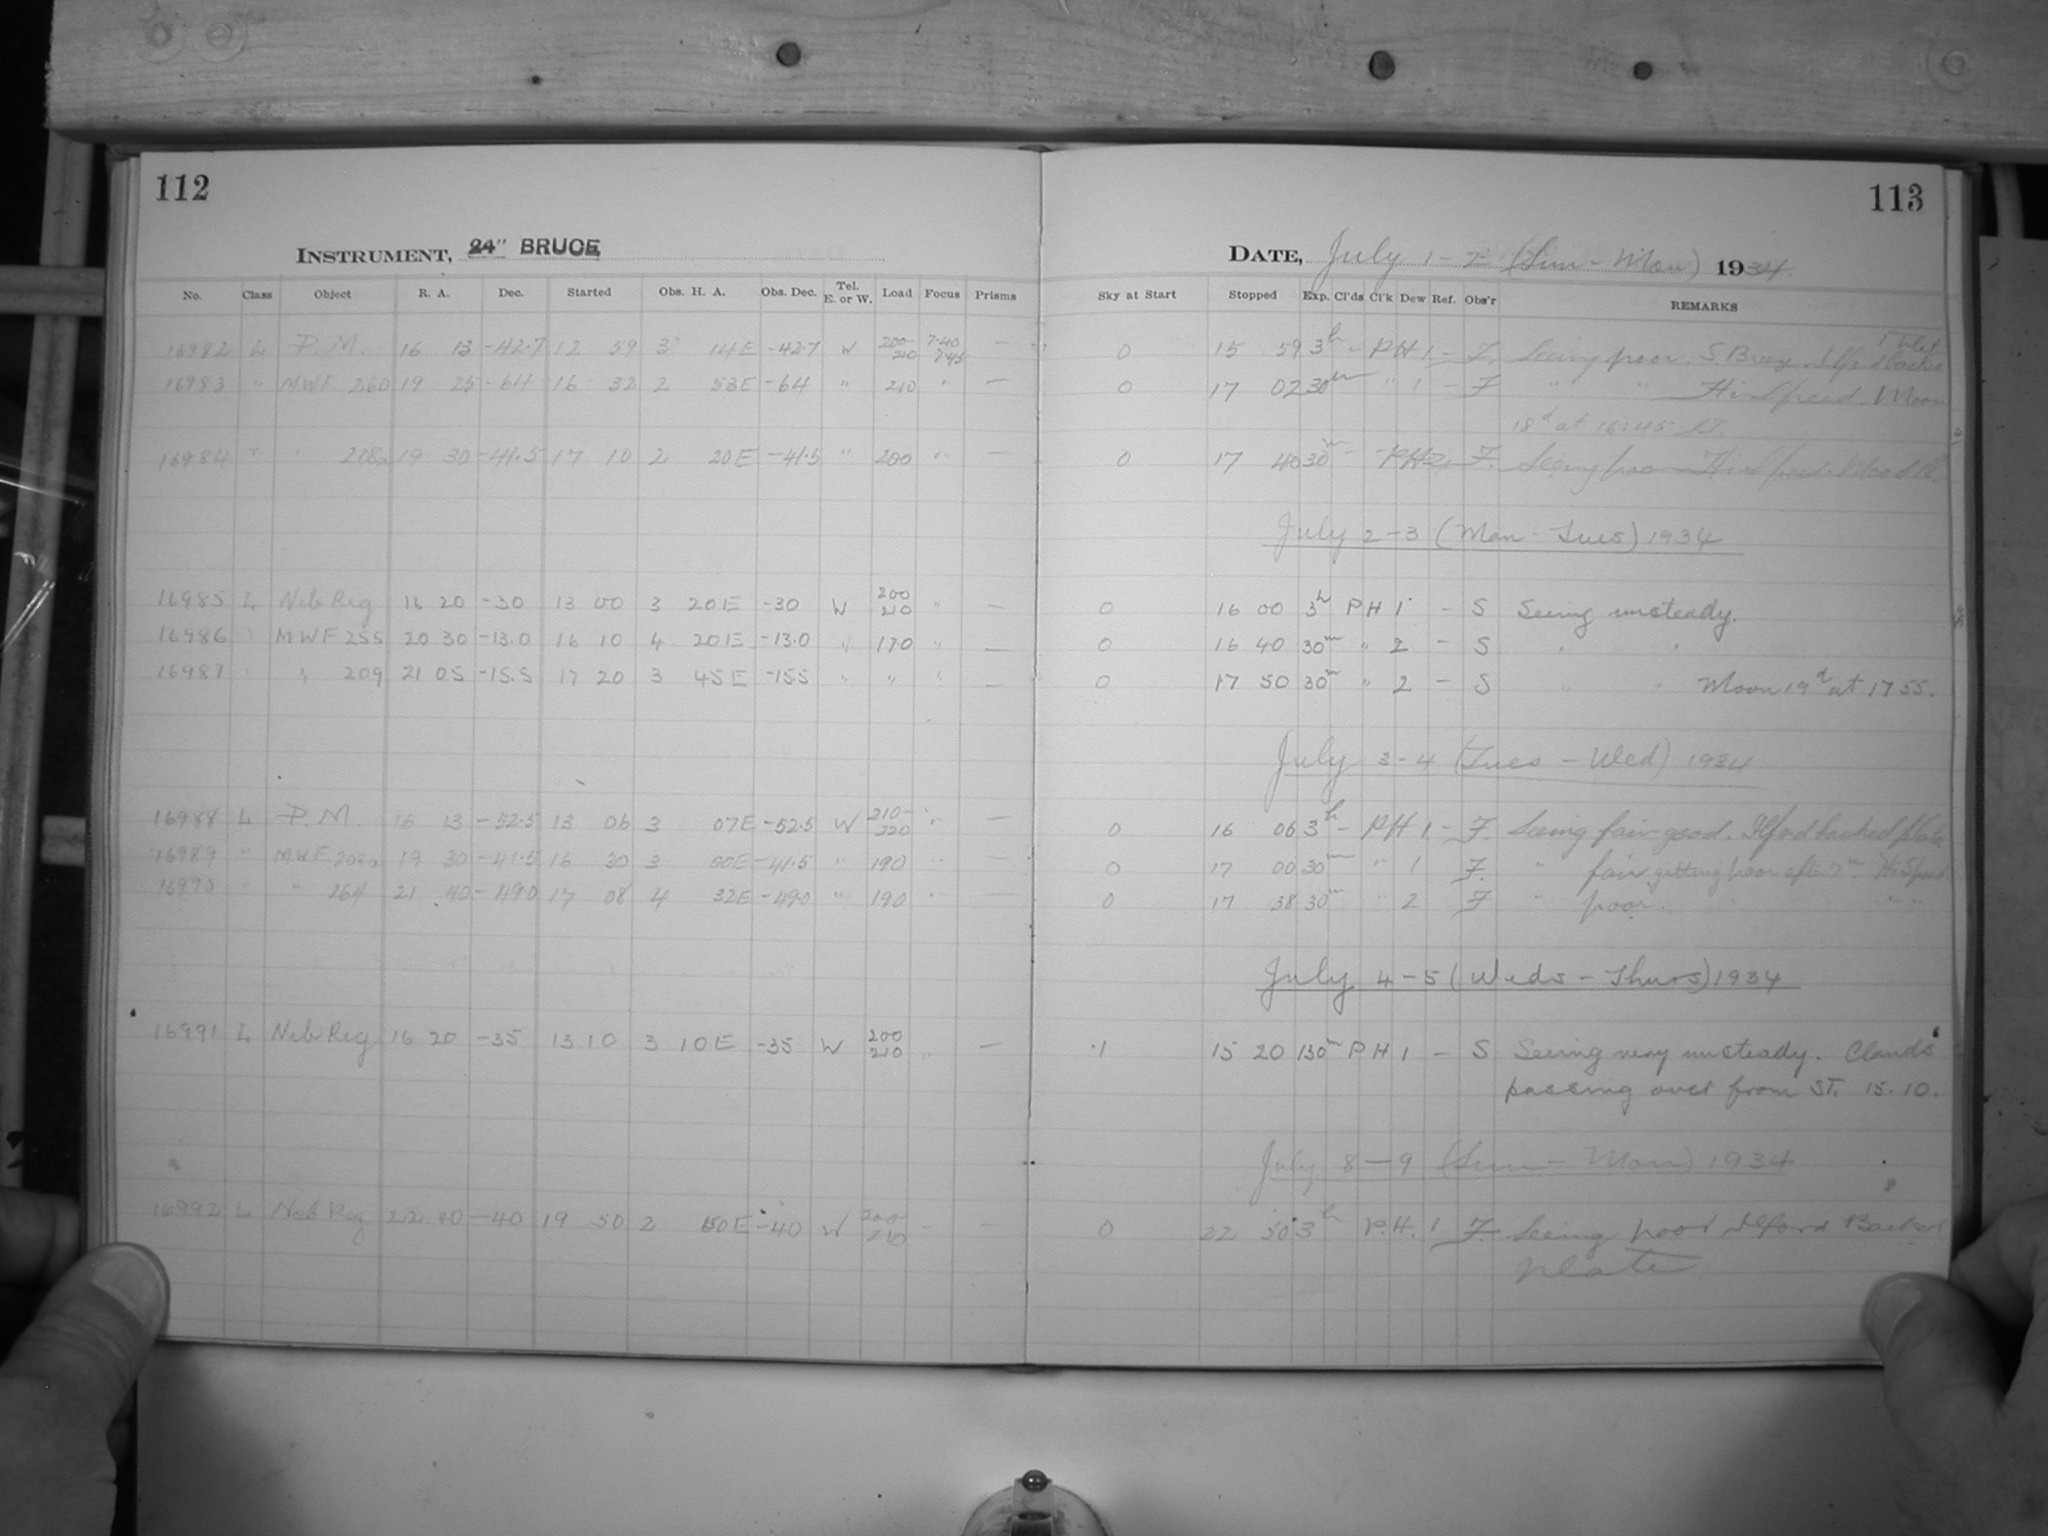 112
113
INSTRUMENT, 24" BRUCE
DATE, July 1-2 (Sun - Mon) 1934.
No. Class Object R. A. Dec. Started Obs. H. A. Obs. Dec. Tel. E. or W. Load Focus Prisms Sky at Start Stopped Exp. Cl'ds Cl'k Dew Ref. Obs'r REMARKS
16982 L P.M. 16 13 -42.7 12 59 3 14E -42.7 W 200- 210 7.40 7.45 — 0 15 59 3h - PH 1 - F. Seeing poor. S. Breeze. Ilford backed
16983 " MWF 260 19 25 -64 16 32 2 53E -64 " 210 " — 0 17 02 30m " 1 - F " " Hi Speed. Moon
18d at 16:45 ST.
16984 " " 208a 19 30 -41.5 17 10 2 20E -41.5 " 200 " — 0 17 40 30m - PH 2 - F. Seeing poor Hi Speed.
July 2-3 (Mon - Tues) 1934
16985 L Neb Reg 16 20 -30 13 00 3 20E -30 W 200 210 " — 0 16 00 3h PH 1 - S Seeing unsteady.
16986 " MWF 255 20 30 -13.0 16 10 4 20E -13.0 " 170 " — 0 16 40 30m " 2 - S " "
16987 " " 209 21 05 -15.5 17 20 3 45E -15.5 " " " — 0 17 50 30m " 2 - S " " Moon 19d at 17 55.
July 3-4 (Tues - Wed) 1934
16988 L P.M. 16 13 -52.5 13 06 3 07E -52.5 W 210- 220 " — 0 16 06 3h - PH 1 - F. Seeing fair good. Ilford backed plate
16989 " MWF 208a 19 30 -41.5 16 30 3 00E -41.5 " 190 " — 0 17 00 30m " 1 F. " fair getting poor after 7m Hi Speed
16990 " " 264 21 40 -49.0 17 08 4 32E -49.0 " 190 " — 0 17 38 30m " 2 F " poor. " "
July 4-5 (Weds - Thurs) 1934
16991 L Neb Reg 16 20 -35 13 10 3 10E -35 W 200 210 " — .1 15 20 130m PH 1 - S Seeing very unsteady. Clouds
passing over from ST. 15.10.
July 8-9 (Sun - Mon) 1934
16992 L Neb Reg 22 40 -40 19 50 2 50E -40 W 200- 210 - — 0 22 50 3h P.H. 1 F. Seeing poor Ilford Backed
plate